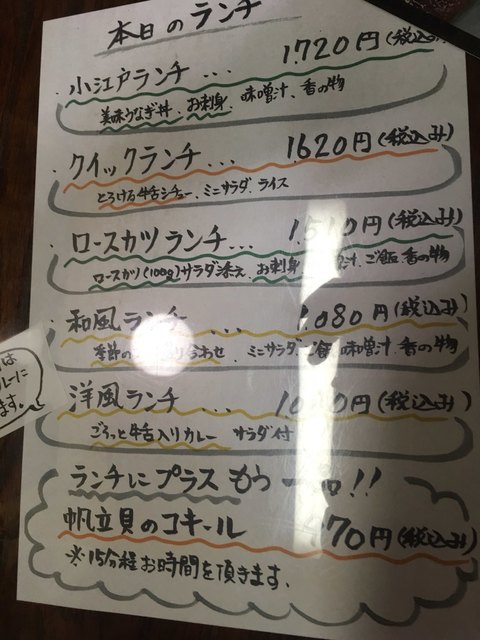 本日のランチ
小江戸ランチ... 1,720円(税込み)
美味うなぎ丼、お刺身、味噌汁、香の物
クイックランチ... 1620円(税込み)
とろける牛舌シチュー、ミニサラダ、ライス
ロースカツランチ... 円(税込み)
ロースカツ(100g)サラダ添え、お刺身 汁、ご飯、香の物
和風ランチ ... 1,080円(税込み)
季節の 合わせ、ミニサラダ、 味噌汁、香の物
洋風ランチ ... 円(税込み)
ごろっと牛舌入りカレー サラダ付
ランチにプラス もう一品!!
帆立貝のコキール 70円(税込み)
※15分程お時間を頂きます。
は
ルーに
ます。